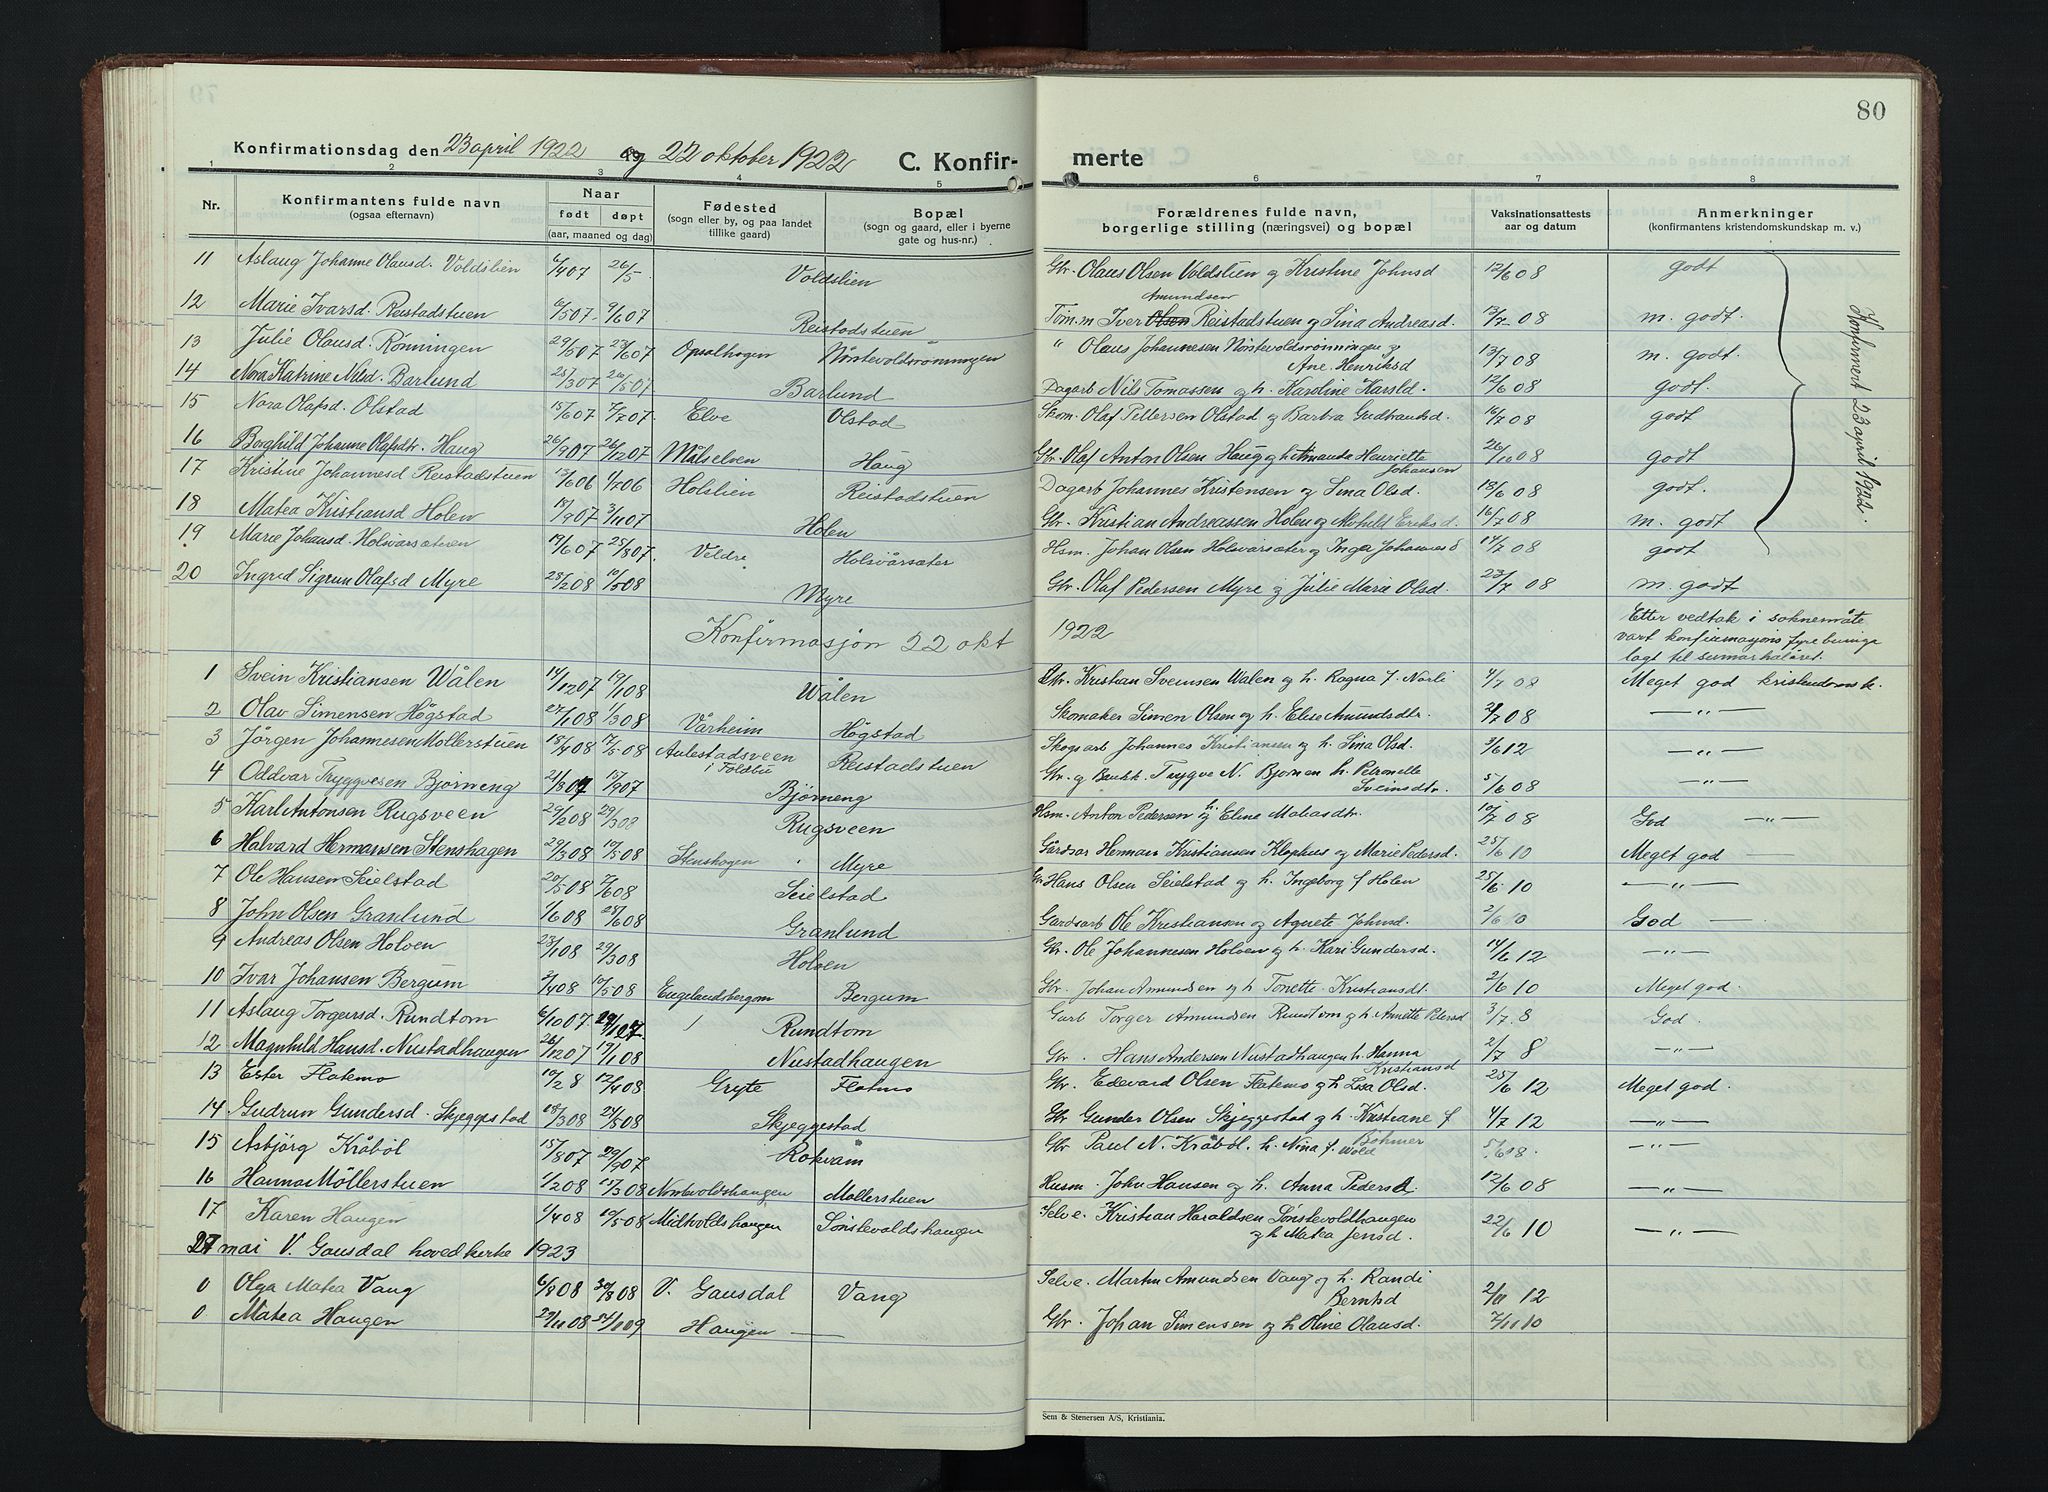 80
Konfirmationsdag den 23 april 1922 og 22 oktober 1922 C. Konfir-
merte
1 2 3 4 5 6 7 8
Nr. Konfirmantens fulde navn (ogsaa efternavn) Naar født døpt (aar, maaned og dag) Fødested (sogn eller by, og paa landet tillike gaard) Bopæl (sogn og gaard, eller i byerne gate og hus-nr.) Forældrenes fulde navn, borgerlige stilling (næringsvei) og bopæl Vaksinationsattests aar og datum Anmerkninger (konfirmantens kristendomskundskap m. v.)
11 Aslaug Johanne Olausd. Voldslien 6/4 07 26/5. Voldslien Gbr. Olaus Olsen Voldslien og Kristine Johnsd 12/6 08 godt
12 Marie Ivarsd. Reistadstuen 6/5 07 9/6 07 Reistadstuen Tøm.m Iver Olsen Amundsen Reistadstuen og Lina Andreasd. 13/7 08 m. godt.
13 Julie Olausd. Rønningen 29/5 07 23/6 07 Opsalhagen Nørstevoldsrønningen " Olaus Johannesen Nørstevoldsrønningen og Ane Henriksd 13/7 08 m. godt.
14 Nora Katrine Nilsd. Barlund 25/3 07 26/5 07 Barlund Dagarb Nils Tomassen og h. Karoline Karsld. 12/6 08 godt.
15 Nora Olafsd. Olstad 15/6 07 7/7 07. Elve Olstad Skom. Olaf Pettersen Olstad og Barbra Gudbrandsd. 16/7 08 godt
16 Borghild Johanne Olafsdtr. Haug 26/9 07 26/12 07 Målselven Haug Gbr. Olaf Anton Olsen Haug og h. Amanda Henriette Johansen 26/10 08 godt
17 Kristine Johannesd Reistadstuen 13/6 06 1/7 06 Holslien Reistadstuen Dagarb Johannes Kristensen og Lina Olsd. 18/6 08 godt.
18 Matea Kristiansd Holen 18/9 07 3/11 07 Holen Gbr. Kristian Andreassen Holen og Mathild Eriksd. 16/7 08 m. godt
19 Marie Johansd. Holsvårsæteren 19/6 07 25/8 07. Veldre Holsvårsæter Hsm. Johan Olsen Holsvårsæter og Inger Johannesd 14/7 08 godt
20 Ingrid Sigrun Olafsd Myre 23/2 08 10/5 08 Myre Gbr. Olaf Pedersen Myre og Julie Marie Olsd. 23/7 08 m. godt
Konfirmert 23 april 1922.
Konfirmasjon 22 okt 1922 Etter vedtak i soknemøte
vart konfirmasjons fyrebuinga
lagt til sumarhalåret.
1 Svein Kristiansen Wålen 14/12 07 19/1 08 Wålen Gbr. Kristian Sveinsen Walen og h. Ragna f. Norli 4/7 08 Meget god kristendomsk.
2 Olav Simensen Högstad 27/1 08 1/3 08 Vårheim Högstad Skomaker Simen Olsen og h. Elise Amundsdtr. 2/7 08 — " —
3 Jörgen Johannesen Möllerstuen 18/4 08 17/5 08 Aulestadsveen i Follebu Reistadstuen Skogsarb Johannes Kristiansen og h. Lina Olsd. 3/6 12 — " —
4 Oddvar Tryggvesen Bjørneng 21/8 07 15/9 07 Bjørneng Gbr. og Bankk. Trygve N. Bjørnen h. Petronelle Sveinsdtr. 5/6 08 — " —
5 Karl Antonsen Rugsveen 29/2 08 29/3 08 Rugsveen Hsm. Anton Pedersen og h. Elina Matiasdtr. 10/7 08 God — " —
6 Halvard Hermansen Stenshagen 29/3 08 10/5 08 Stenshagen Myre Gårdsar Herman Kristiansen Klophus og Marie Pedersd. 25/6 10 Meget god —
7 Ole Hansen Seielstad 20/5 08 7/6 08 Seielstad Gbr Hans Olsen Seielstad og h. Ingeborg f Holen 25/6 10 — " —
8 John Olsen Granlund 1/6 08 28/6 08 Granlund Gardsarb Ole Kristiansen og Agnete Johnsd. 2/6 10 God —
9 Andreas Olsen Holoen 23/1 08 29/3 08 Holoen Gbr. Ole Johannesen Holoen og h. Kari Gundersd. 14/6 12 — " —
10 Ivar Johansen Bergum 2/4 08 10/5 08 Engelandsbergom Bergum Gbr. Johan Amundsen og h Tonette Kristiansdt. 2/6 10 Meget god.
11 Aslaug Torgersd. Rundtom 6/10 07 29/10 7 Rundtom Garb Torger Amundsen Rundtom og h. Annette Petersd 3/7 8 God.
12 Magnhild Hansd. Nustadhaugen 26/12 07 19/1 08 Nustadhaugen Gbr. Hans Andersen Nustadhaugen h. Hanna Kristiansd 2/7 8 — " —
13 Ester Flatmo 10/2 8 12/4 08 Gryte Flatmo Gbr. Edevard Olsen Flatmo og h Lisa Olsd. 25/6 12 Meget god.
14 Gudrun Gundersd. Skjeggestad 18/3 08 24/5 08 Skjeggestad Gbr Gunder Olsen Skjeggestad og h. Kristiane f Böhmer 4/7 12 — " —
15 Asbjörg Kråböl 15/8 07 29/9 07 Rokvam Gbr Paul N. Kråböl. h. Nina f. Wold 5/6 08. — " —
16 Hanna Möllerstuen 1/2 08 15/3 08 Nordvoldshaugen Møllerstuen Husm. John Hansen og h. Anna Pedersd. 12/6 08 — " —
17 Karen Haugen 1/4 08 10/5 08 Midtvoldshaugen Sønstevoldshaugen Selve. Kristian Haraldsen Sønstevoldhaugen og h Matea Jensd. 22/6 10 — " —
27 mai V. Gausdal hovedkirke 1923
0 Olga Matea Vang 6/8 08 30/8 08 V. Gausdal Vang Selve. Martin Amundsen Vang og h. Randi Berntsd 2/11 12
0 Matea Haugen 29/11 08 24/1 09 Haugen — Gbr. Johan Simensen og h Oline Olausd. 7/11 10
Sem & Stenersen A/S, Kristiania.